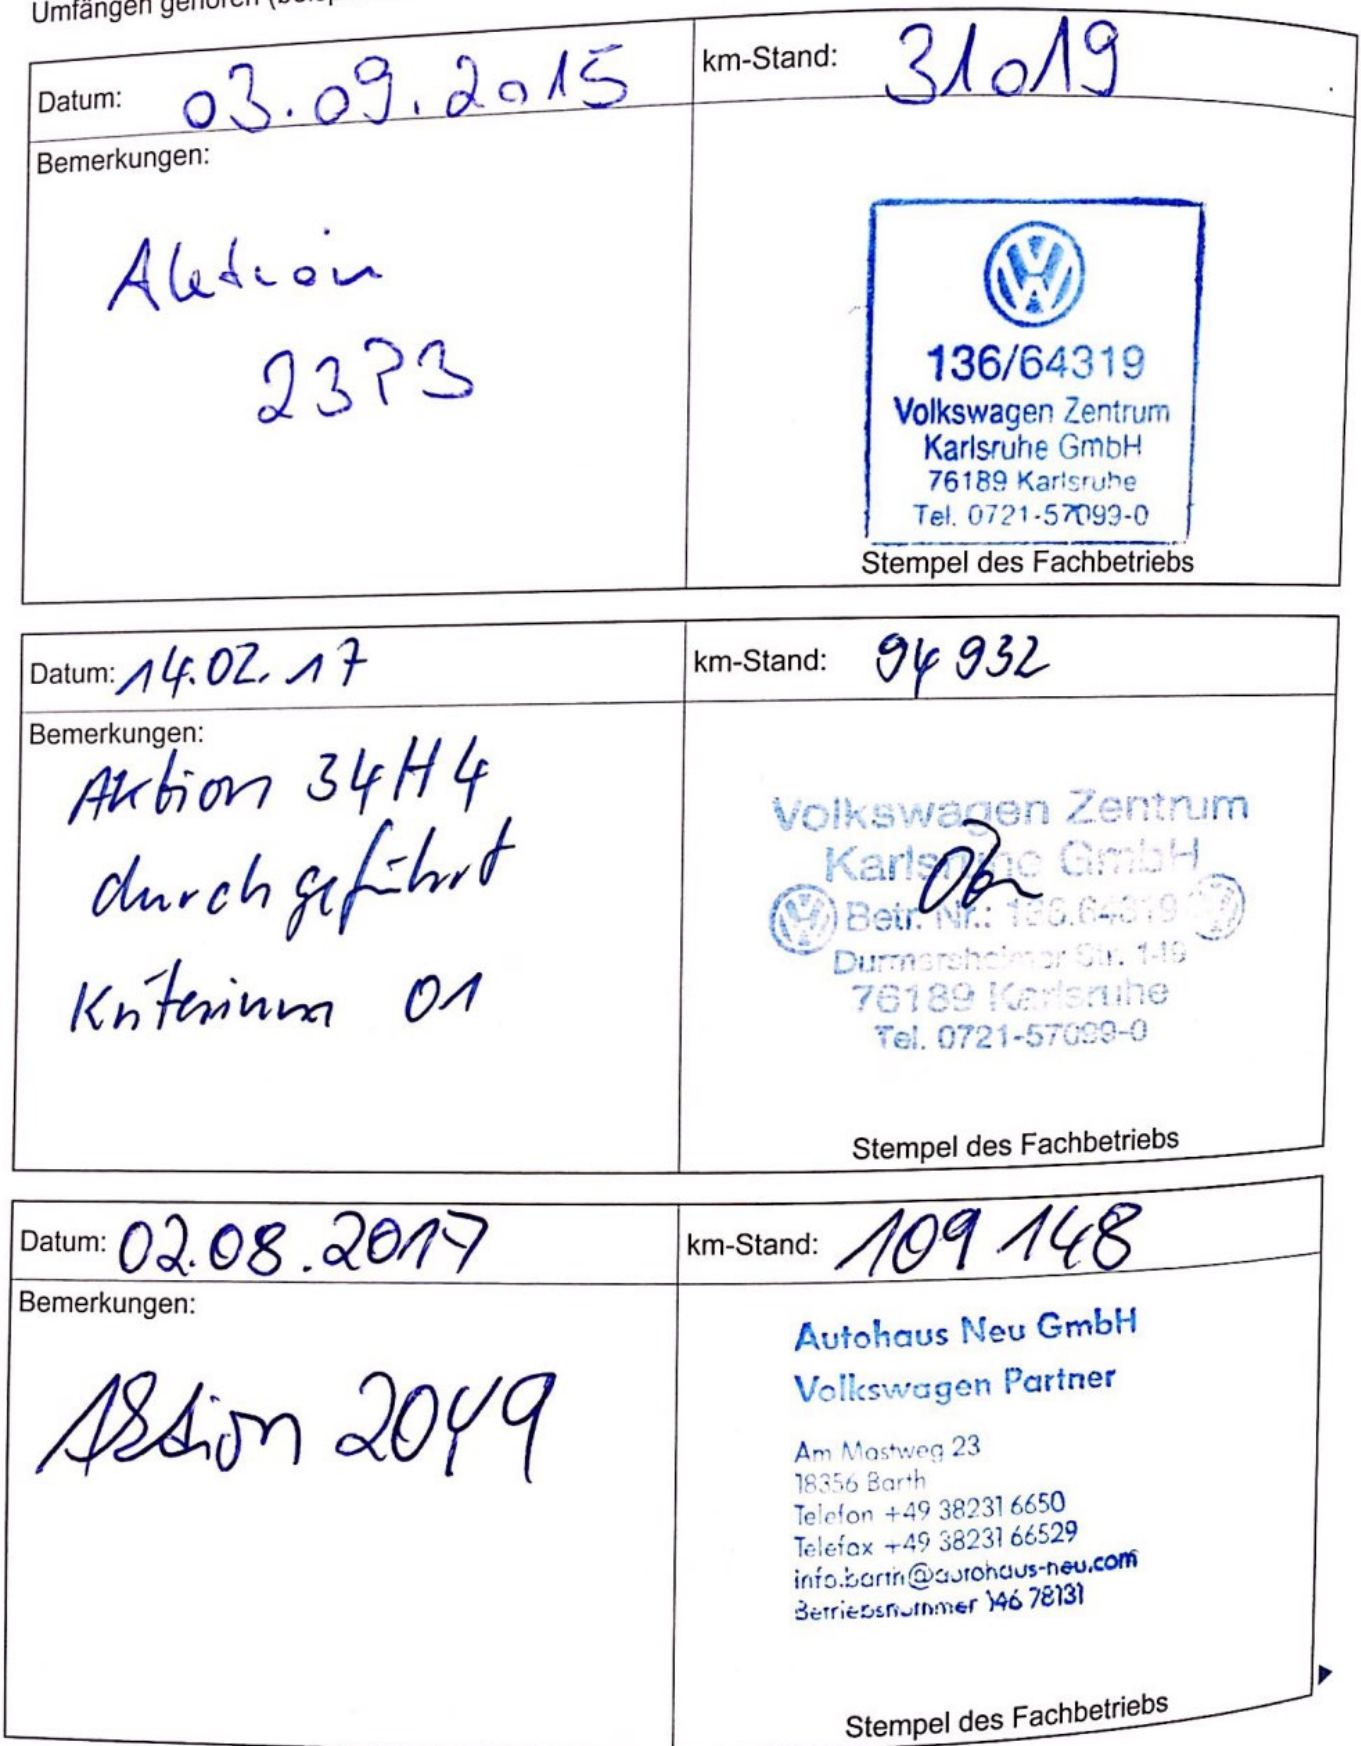 Umfängen gehören
Datum: 03.09.2015
km-Stand: 31019
Bemerkungen:
Aktion
23P3
136/64319
Volkswagen Zentrum
Karlsruhe GmbH
76189 Karlsruhe
Tel. 0721-57099-0
Stempel des Fachbetriebs
Datum: 14.02.17
km-Stand: 94 932
Bemerkungen:
Aktion 34H4
durchgeführt
Kriterium 01
Volkswagen Zentrum
Karlsruhe GmbH
Betr. Nr.: 136.64319
Durmersheimer Str.
76189 Karlsruhe
Tel. 0721-57099-0
Stempel des Fachbetriebs
Datum: 02.08.2017
km-Stand: 109 148
Bemerkungen:
Aktion 2049
Autohaus Neu GmbH
Volkswagen Partner
Am Mastweg 23
18356 Barth
Telefon +49 38231 6650
Telefax +49 38231 66529
info.barth@autohaus-neu.com
Betriebsnummer 146 78131
Stempel des Fachbetriebs